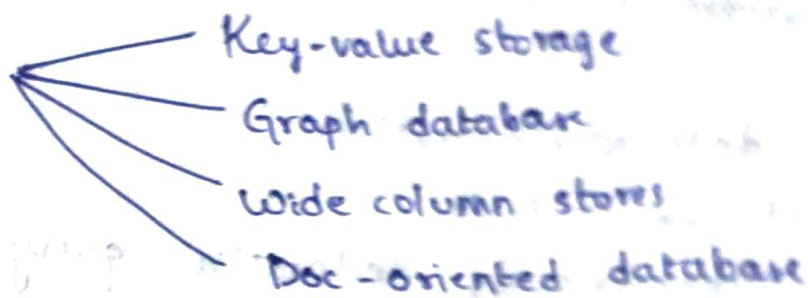 Key-value storage
Graph database
Wide column stores
Doc-oriented database